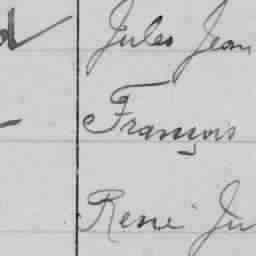 Jules Jean
François
René Ju